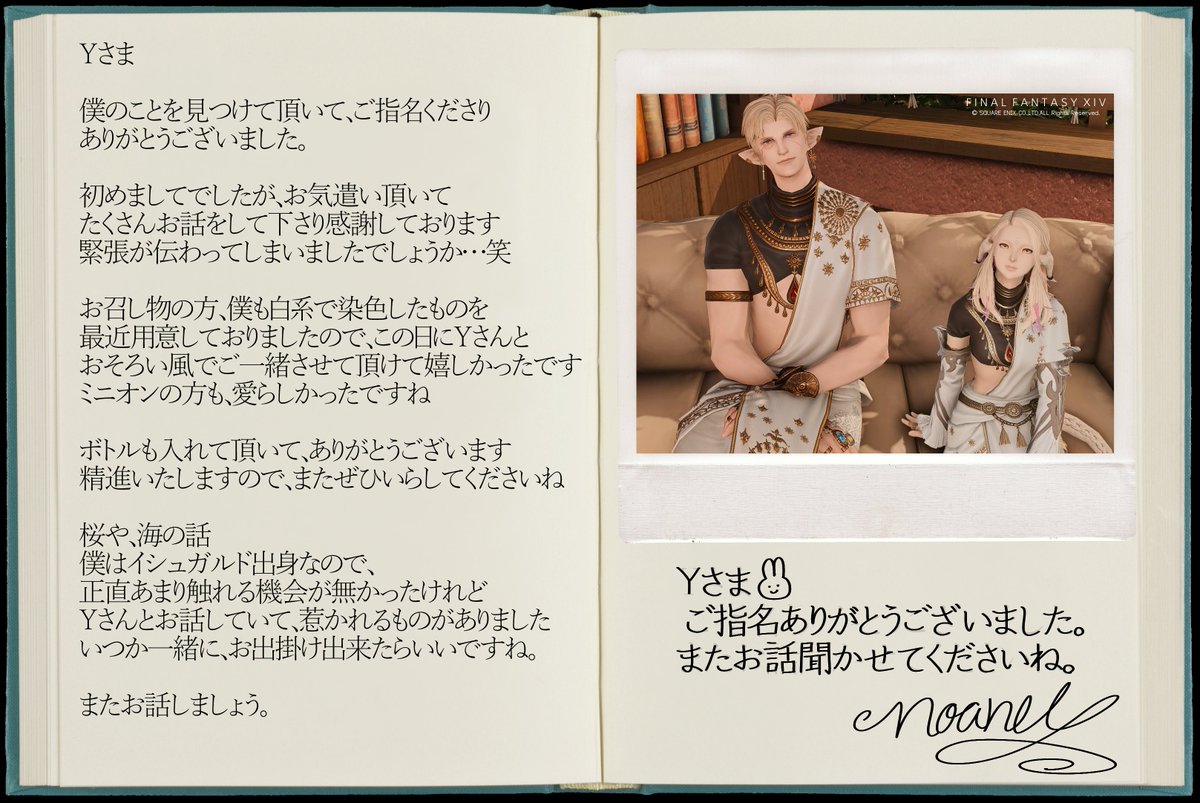 Yさま
僕のことを見つけて頂いて、ご指名くださり
ありがとうございました。
初めましてでしたが、お気遣い頂いて
たくさんお話をして下さり感謝しております
緊張が伝わってしまいましたでしょうか…笑
お召し物の方、僕も白系で染色したものを
最近用意しておりましたので、この日にYさんと
おそろい風でご一緒させて頂けて嬉しかったです
ミニオンの方も、愛らしかったですね
ボトルも入れて頂いて、ありがとうございます
精進いたしますので、またぜひいらしてくださいね
桜や、海の話
僕はイシュガルド出身なので、
正直あまり触れる機会が無かったけれど
Yさんとお話していて、惹かれるものがありました
いつか一緒に、お出掛け出来たらいいですね。
またお話しましょう。
FINAL FANTASY XIV
© SQUARE ENIX CO.,LTD.ALL Rights Reserved.
Yさま
ご指名ありがとうございました。
またお話聞かせてくださいね。
noanel